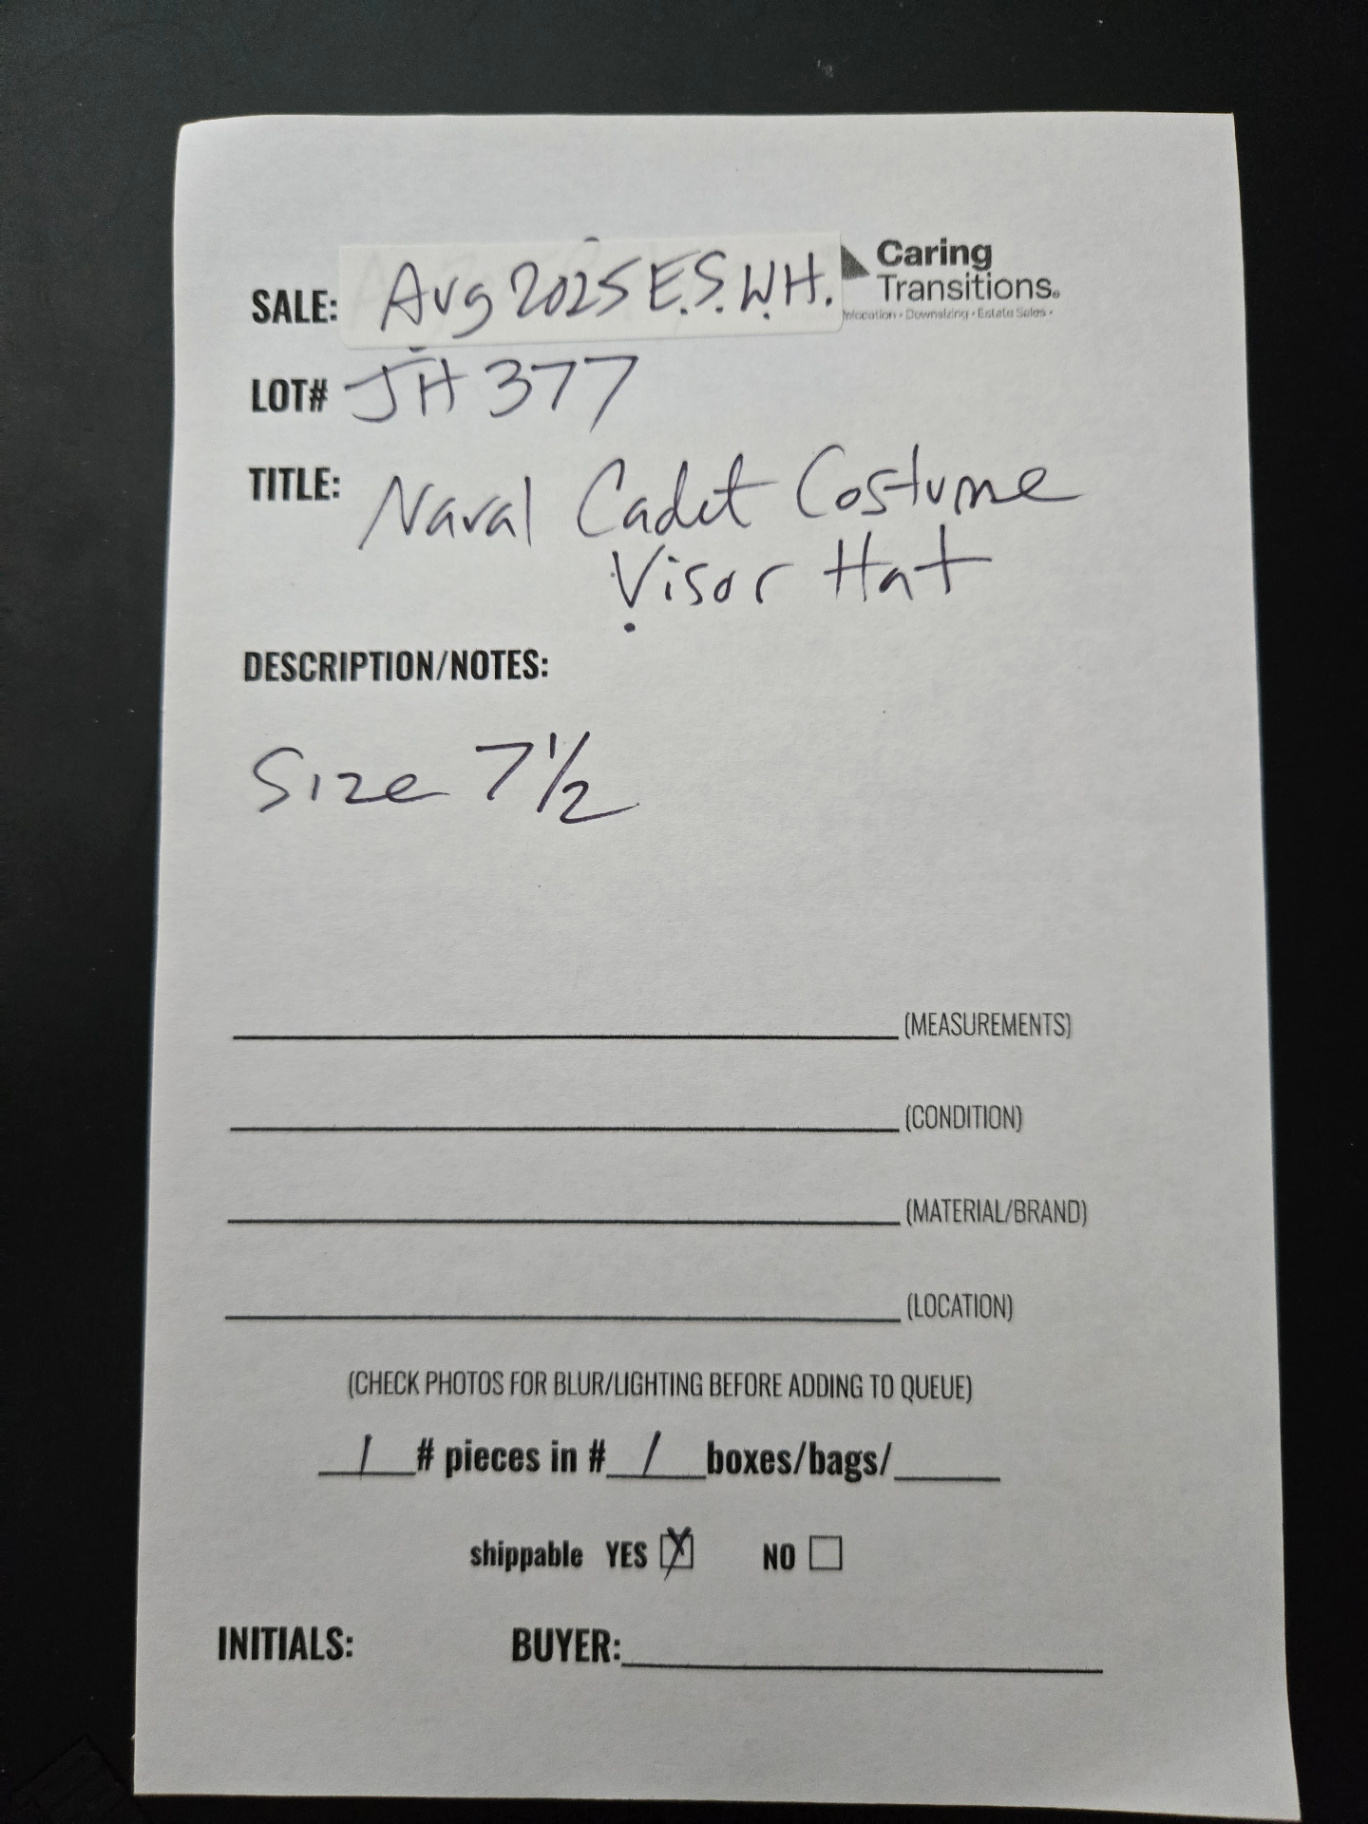 SALE: Aug 2025 E.S.W.H.
Caring
Transitions®
Relocation • Downsizing • Estate Sales •
LOT# JH377
TITLE: Naval Cadet Costume
Visor Hat
DESCRIPTION/NOTES:
Size 7 1/2
(MEASUREMENTS)
(CONDITION)
(MATERIAL/BRAND)
(LOCATION)
(CHECK PHOTOS FOR BLUR/LIGHTING BEFORE ADDING TO QUEUE)
1 # pieces in # 1 boxes/bags/
shippable YES ☒ NO ☐
INITIALS: BUYER: